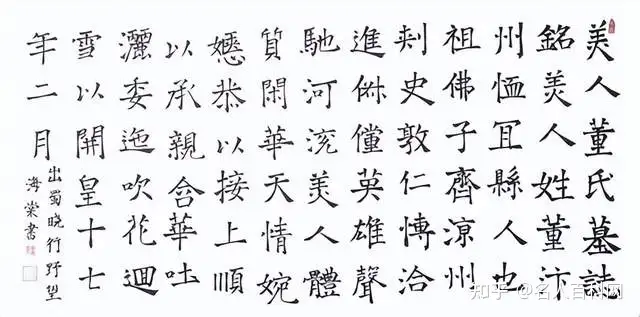 美人董氏墓誌
銘美人姓董汴
州恤冝縣人也
祖佛子齊涼州
刺史敦仁博洽
進俶儻英雄聲
馳河沇美人體
質閑華天情婉
嬺恭以接上順
以承親含華吐
灑委迤吹花迴
雪以開皇十七
年二月
出蜀曉行野望
海棠書
知乎 @名人百科网